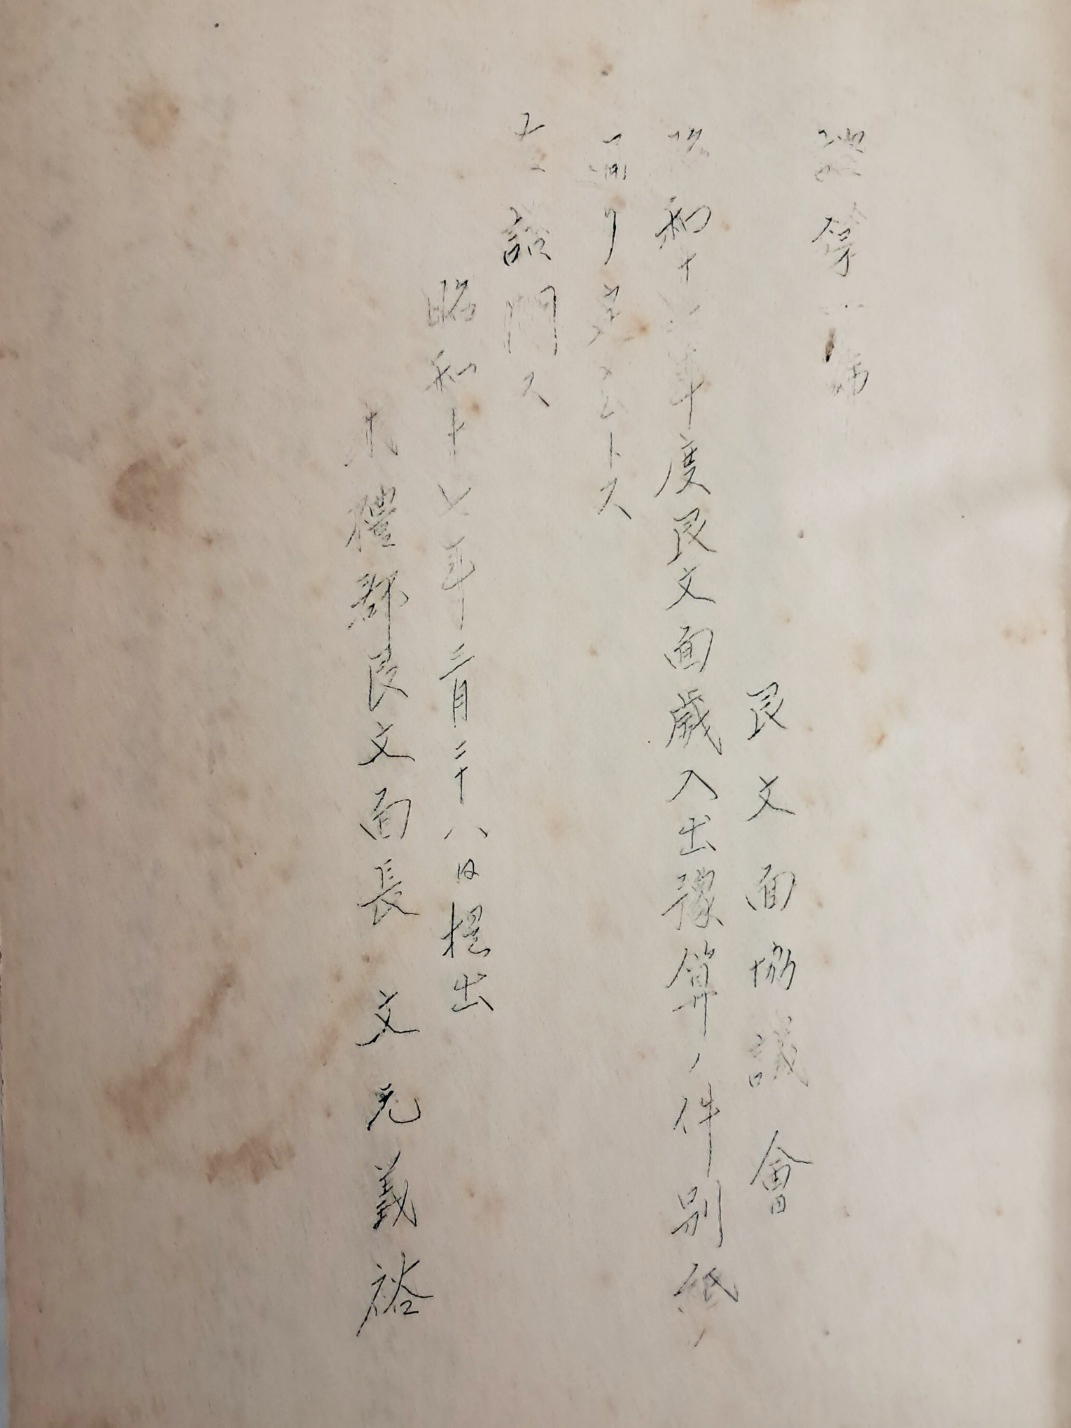 第一號
艮文面協議會
昭和十七年度艮文面歲入出豫算ノ件別紙ノ
通リ定メムトス
右諮問ス
昭和十七年三月二十八日提出
求禮郡艮文面長 文元義裕